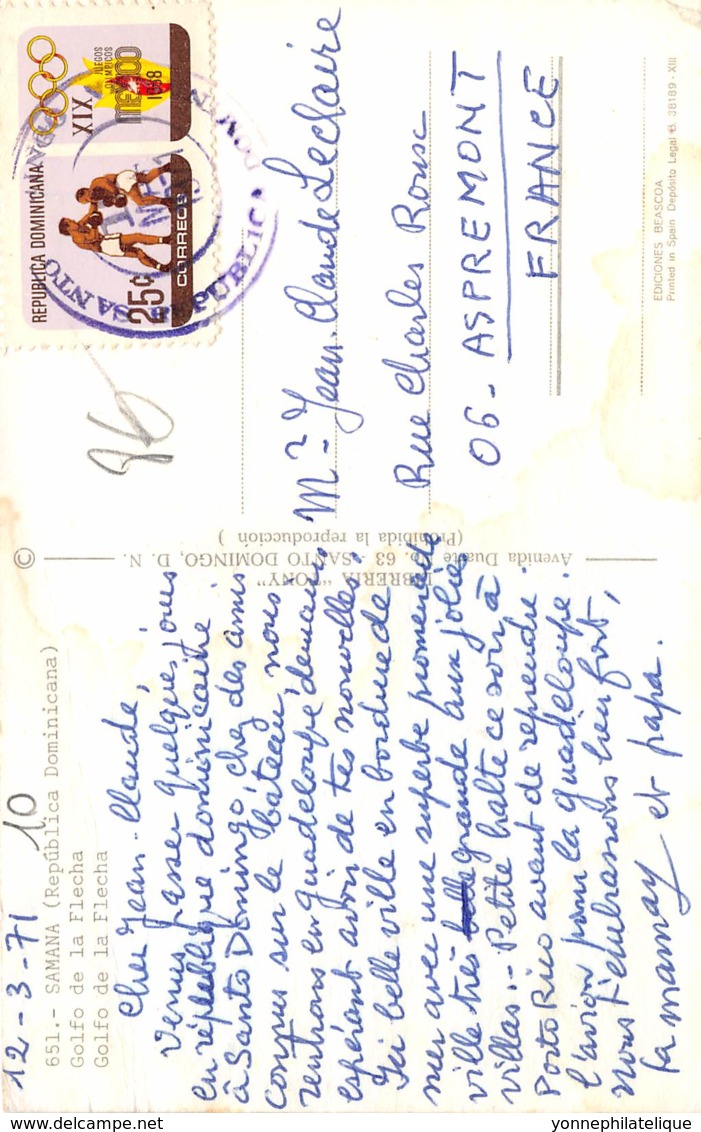 12-3-71
10
651.- SAMANA (República Dominicana)
Golfo de la Flecha
Golfo de la Flecha
Cher Jean-Claude,
Venus passer quelques jours
en république dominicaine
à Santo Domingo, chez des amis
connus sur le bateau, nous
rentrons en Guadeloupe demain
espérant avoir de tes nouvelles.
Ici belle ville en bordure de
mer avec une superbe promenade
ville très grande aux jolies
villas.- Petite halte ce soir à
Porto Rico avant de reprendre
l'avion pour la Guadeloupe.
Nous t'embrassons bien fort,
ta maman et papa.
LIBRERIA "TONY"
Avenida Duarte No. 63 - SANTO DOMINGO, D. N.
(Prohibida la reproducción)
©
REPUBLICA DOMINICANA
25¢
CORREOS
XIX
JUEGOS
OLIMPICOS
MEXICO
1968
SANTO
REPUBLICA DOMIN
96
Mr Jean-Claude Leclaire
Rue Charles Roux
06 - ASPREMONT
FRANCE
EDICIONES BEASCOA
Printed in Spain Depósito Legal B. 38189 - XIII
yonnephilatelique